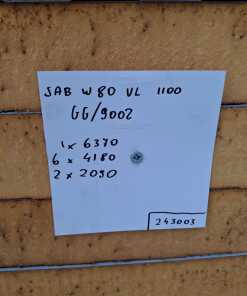 JAB W 80 VL 1100
GG/9002
1 x 6370
6 x 4180
2 x 2090
243003